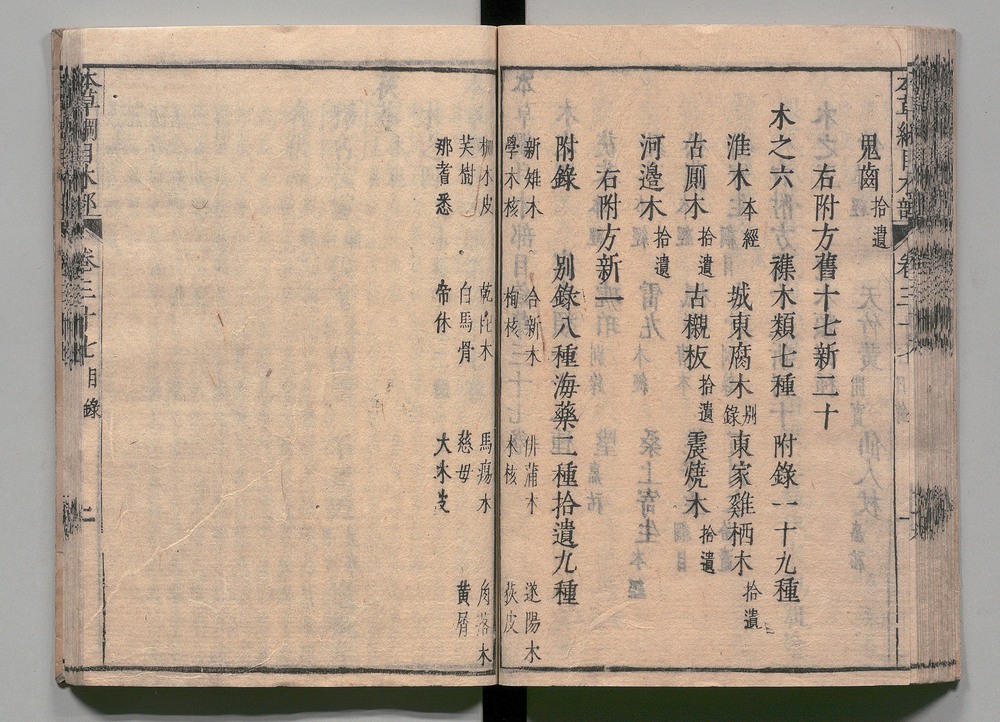 鬼齒 拾遺
右附方舊十七新二十
木之六 襍木類七種 附錄一十九種
淮木 本經 城東腐木 別錄 東家雞栖木 拾遺
古厠木 拾遺 古櫬板 拾遺 震燒木 拾遺
河邊木 拾遺
右附方新一
附錄 別錄八種海藥二種拾遺九種
新雉木 合新木 俳蒲木 遂陽木
學木核 栒核 木核 荻皮
柵木皮 乾陀木 馬瘍木 角落木
芙樹 白馬骨 慈母 黄屑
那耆悉 帝休 大木皮
本草綱目木部 卷三十七目錄